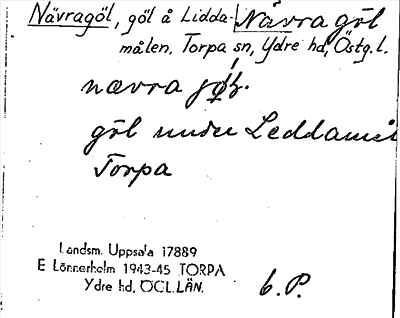 Nävragöl, göl å Lidda- Nävra göl
målen, Torpa sn, Ydre hd, Östg. l.
nævra
göl under Leddamå
Torpa
Landsm. Uppsala 17889
E Lönnerholm 1943-45 TORPA
Ydre hd, ÖGL. LÄN.
6. P.